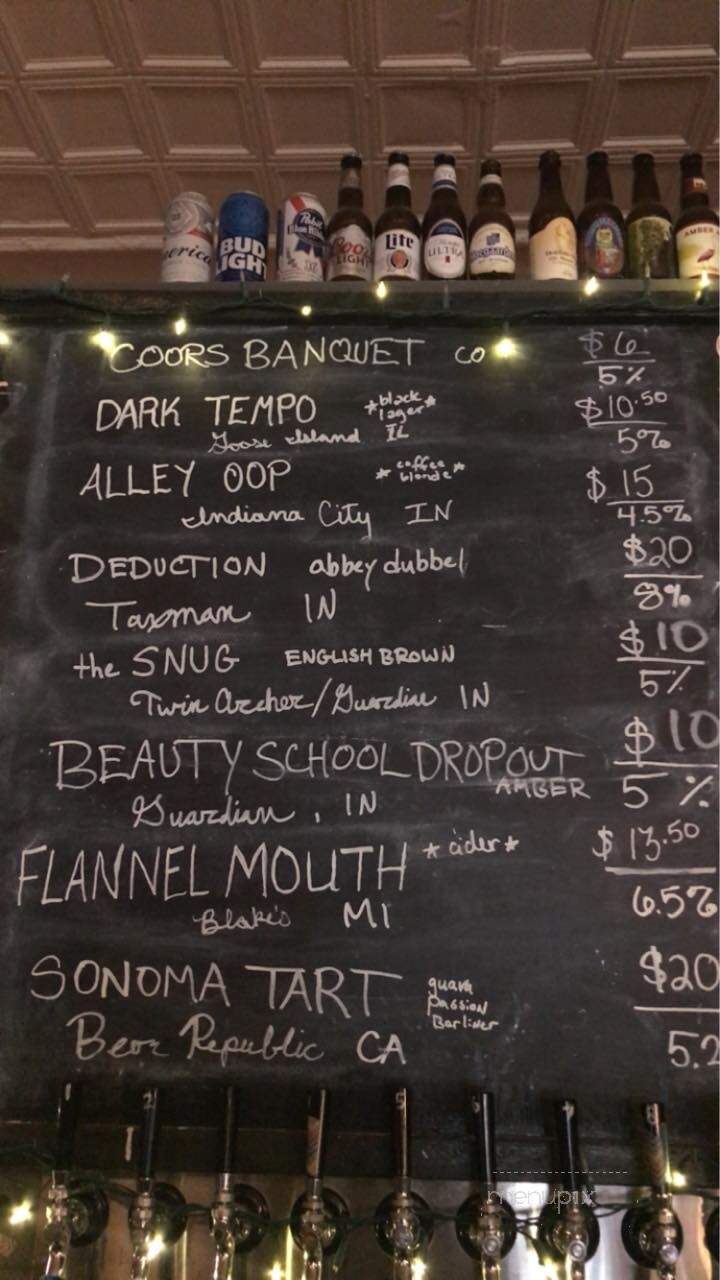 America
BUD LIGHT
Pabst Blue Ribbon
Coors LIGHT
Lite
ULTRA
AMBER
COORS BANQUET CO $6
5%
DARK TEMPO *black lager* $10.50
Goose Island IL 5%
ALLEY OOP *coffee blonde* $15
Indiana City IN 4.5%
DEDUCTION abbey dubbel $20
Taxman IN 8%
the SNUG ENGLISH BROWN $10
Twin Archer/Guardian IN 5%
BEAUTY SCHOOL DROPOUT $10
AMBER 5%
Guardian, IN
FLANNEL MOUTH *cider* $13.50
Blake's MI 6.5%
SONOMA TART guava $20
passion
Berliner
Bear Republic CA 5.2
menupix